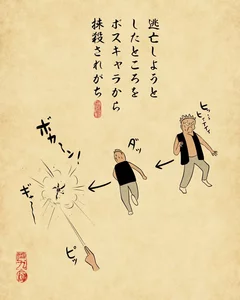 逃亡しようと
したところを
ボスキャラから
抹殺されがち
ヒィーーー
ダッ
ボカーン！
ギャー
ピッ